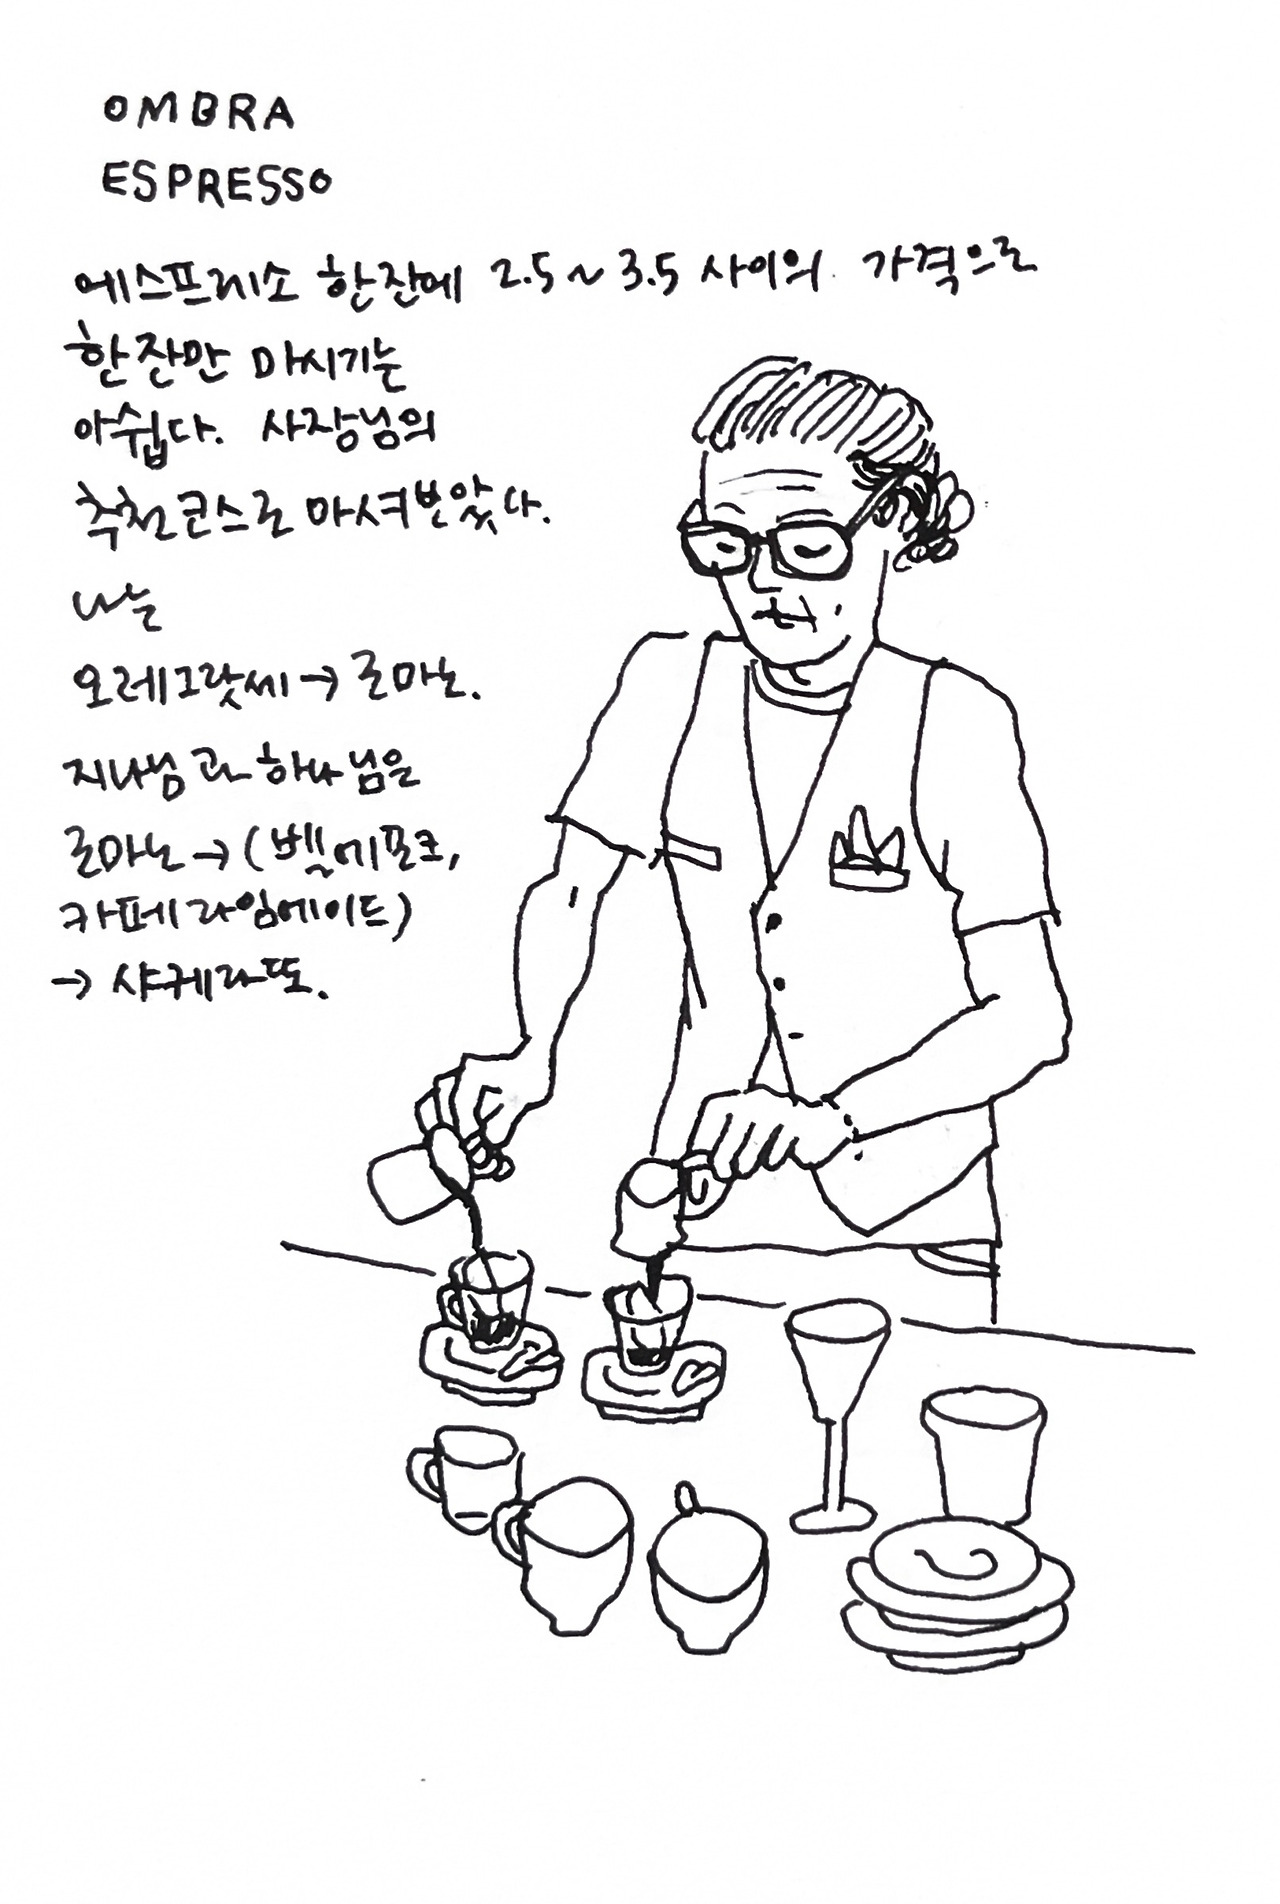 OMBRA
ESPRESSO
에스프레소 한잔에 2.5~3.5 사이의 가격으로
한잔만 마시기는
아쉽다. 사장님의
추천코스로 마셔보았다.
나는
오레그랏씨→로마노.
지나님과 하나님은
로마노→(벨에포크,
카페라임에이드)
→샤케라또.